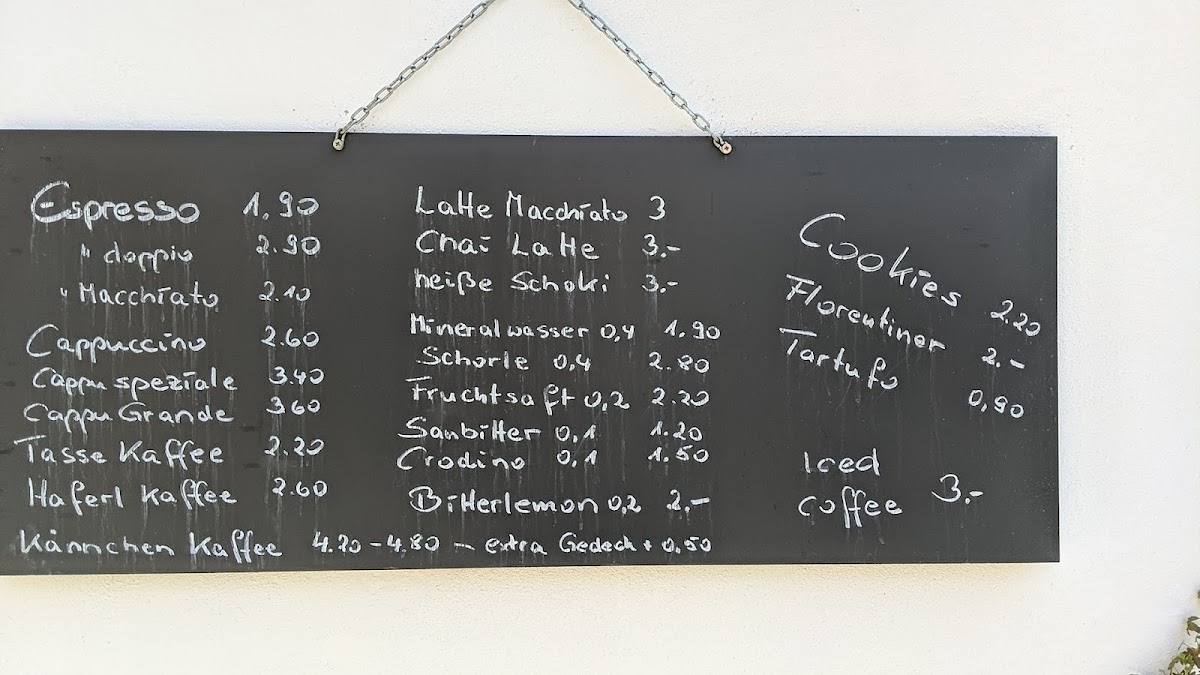 Espresso 1.90
" doppio 2.90
" Macchiato 2.10
Cappuccino 2.60
Cappu speziale 3.40
Cappu Grande 3.60
Tasse Kaffee 2.20
Haferl Kaffee 2.60
Kännchen Kaffee 4.20 - 4.80 - extra Gedeck + 0,50
Latte Macchiato 3
Chai Latte 3.-
heiße Schoki 3.-
Mineralwasser 0,4 1.90
Schorle 0,4 2.80
Fruchtsaft 0,2 2.20
Sanbitter 0,1 1.20
Crodino 0,1 1.50
Bitterlemon 0,2 2.-
Cookies 2.20
Florentiner 2.-
Tartufo 0,90
Iced
coffee 3.-